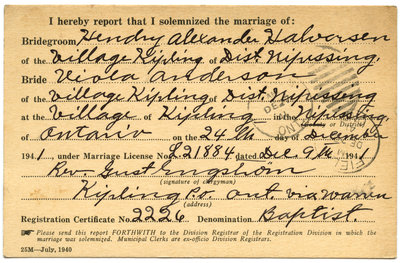 I hereby report that I solemnized the marriage of:
Bridegroom Hendry Alexander Halvorsen
of the Village Kipling of Dist. Nipissing,
Bride Viola Anderson
of the Village Kipling of Dist. Nipissing
at the Village of Kipling in the Nipissing,
of Ontario on the 24th day of December
1941, under Marriage License No. L21884 dated Dec 9th 1941
Rev. Gust Engstrom
(signature of clergyman)
Kipling P.O. Ont. via Warren
(address)
Registration Certificate No. 2226 Denomination Baptist.
Please send this report FORTHWITH to the Division Registrar of the Registration Division in which the
marriage was solemnized. Municipal Clerks are ex-officio Division Registrars.
25M—July, 1940